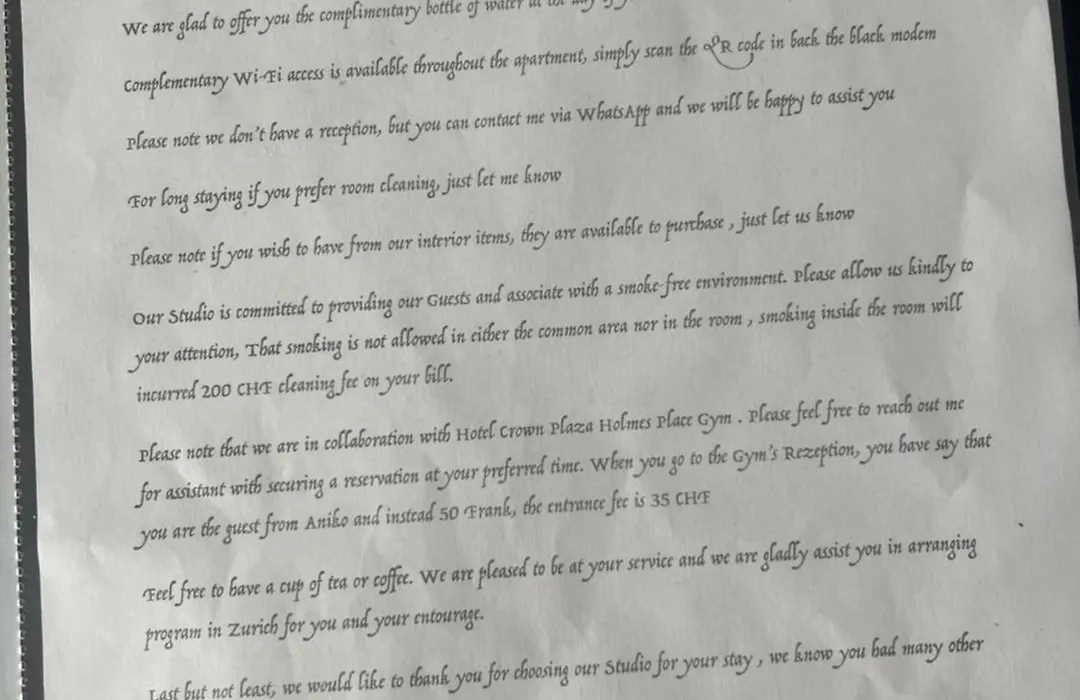 We are glad to offer you the complimentary bottle of water at the day
Complementary Wi-Fi access is available throughout the apartment, simply scan the QR code in back the black modem
Please note we don't have a reception, but you can contact me via WhatsApp and we will be happy to assist you
For long staying if you prefer room cleaning, just let me know
Please note if you wish to have from our interior items, they are available to purchase , just let us know
Our Studio is committed to providing our Guests and associate with a smoke-free environment. Please allow us kindly to
your attention, That smoking is not allowed in either the common area nor in the room , smoking inside the room will
incurred 200 CHF cleaning fee on your bill.
Please note that we are in collaboration with Hotel Crown Plaza Holmes Place Gym . Please feel free to reach out me
for assistant with securing a reservation at your preferred time. When you go to the Gym's Rezeption, you have say that
you are the guest from Aniko and instead 50 Frank, the entrance fee is 35 CHF
Feel free to have a cup of tea or coffee. We are pleased to be at your service and we are gladly assist you in arranging
program in Zurich for you and your entourage.
Last but not least, we would like to thank you for choosing our Studio for your stay , we know you had many other